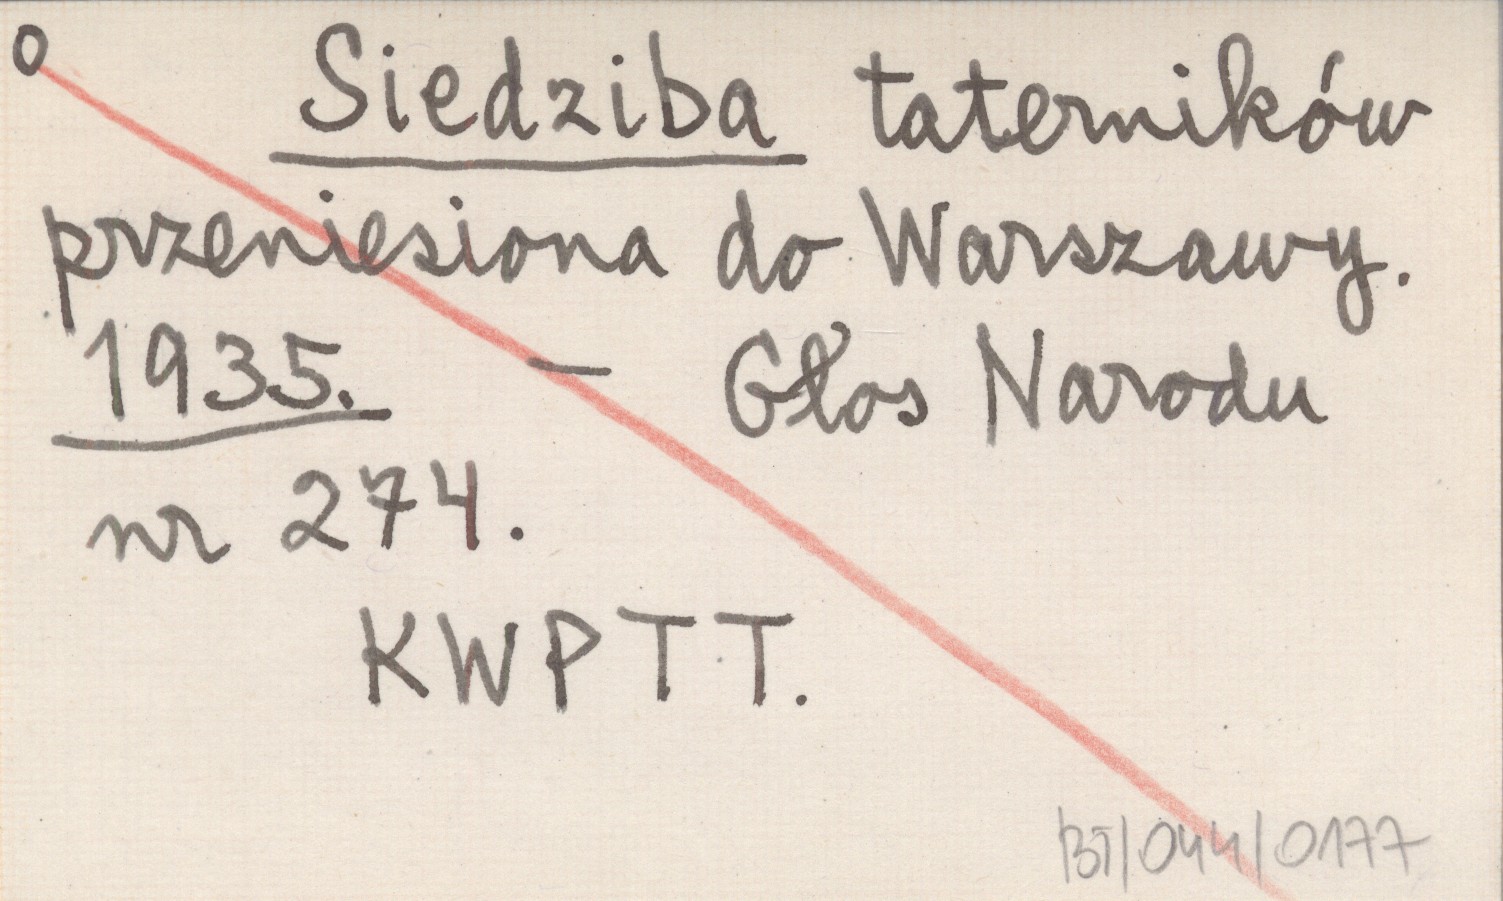 o Siedziba taterników
przeniesiona do Warszawy.
1935. — Głos Narodu
nr 274.
KWPTT.
BT/044/0177